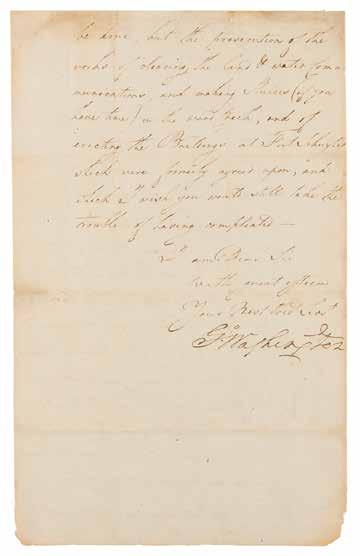 be done, but the prosecution of the
works of clearing the land & water Com-
munications, and making Sluices (if you
have time) in the wood Creek, and of
erecting the Buildings at Fort Schuyler
which were formerly agreed upon, and
which I wish you would still take the
trouble of having compleated —
I am Dear Sir
with great esteem
Your Most Obed Servt
Go Washington